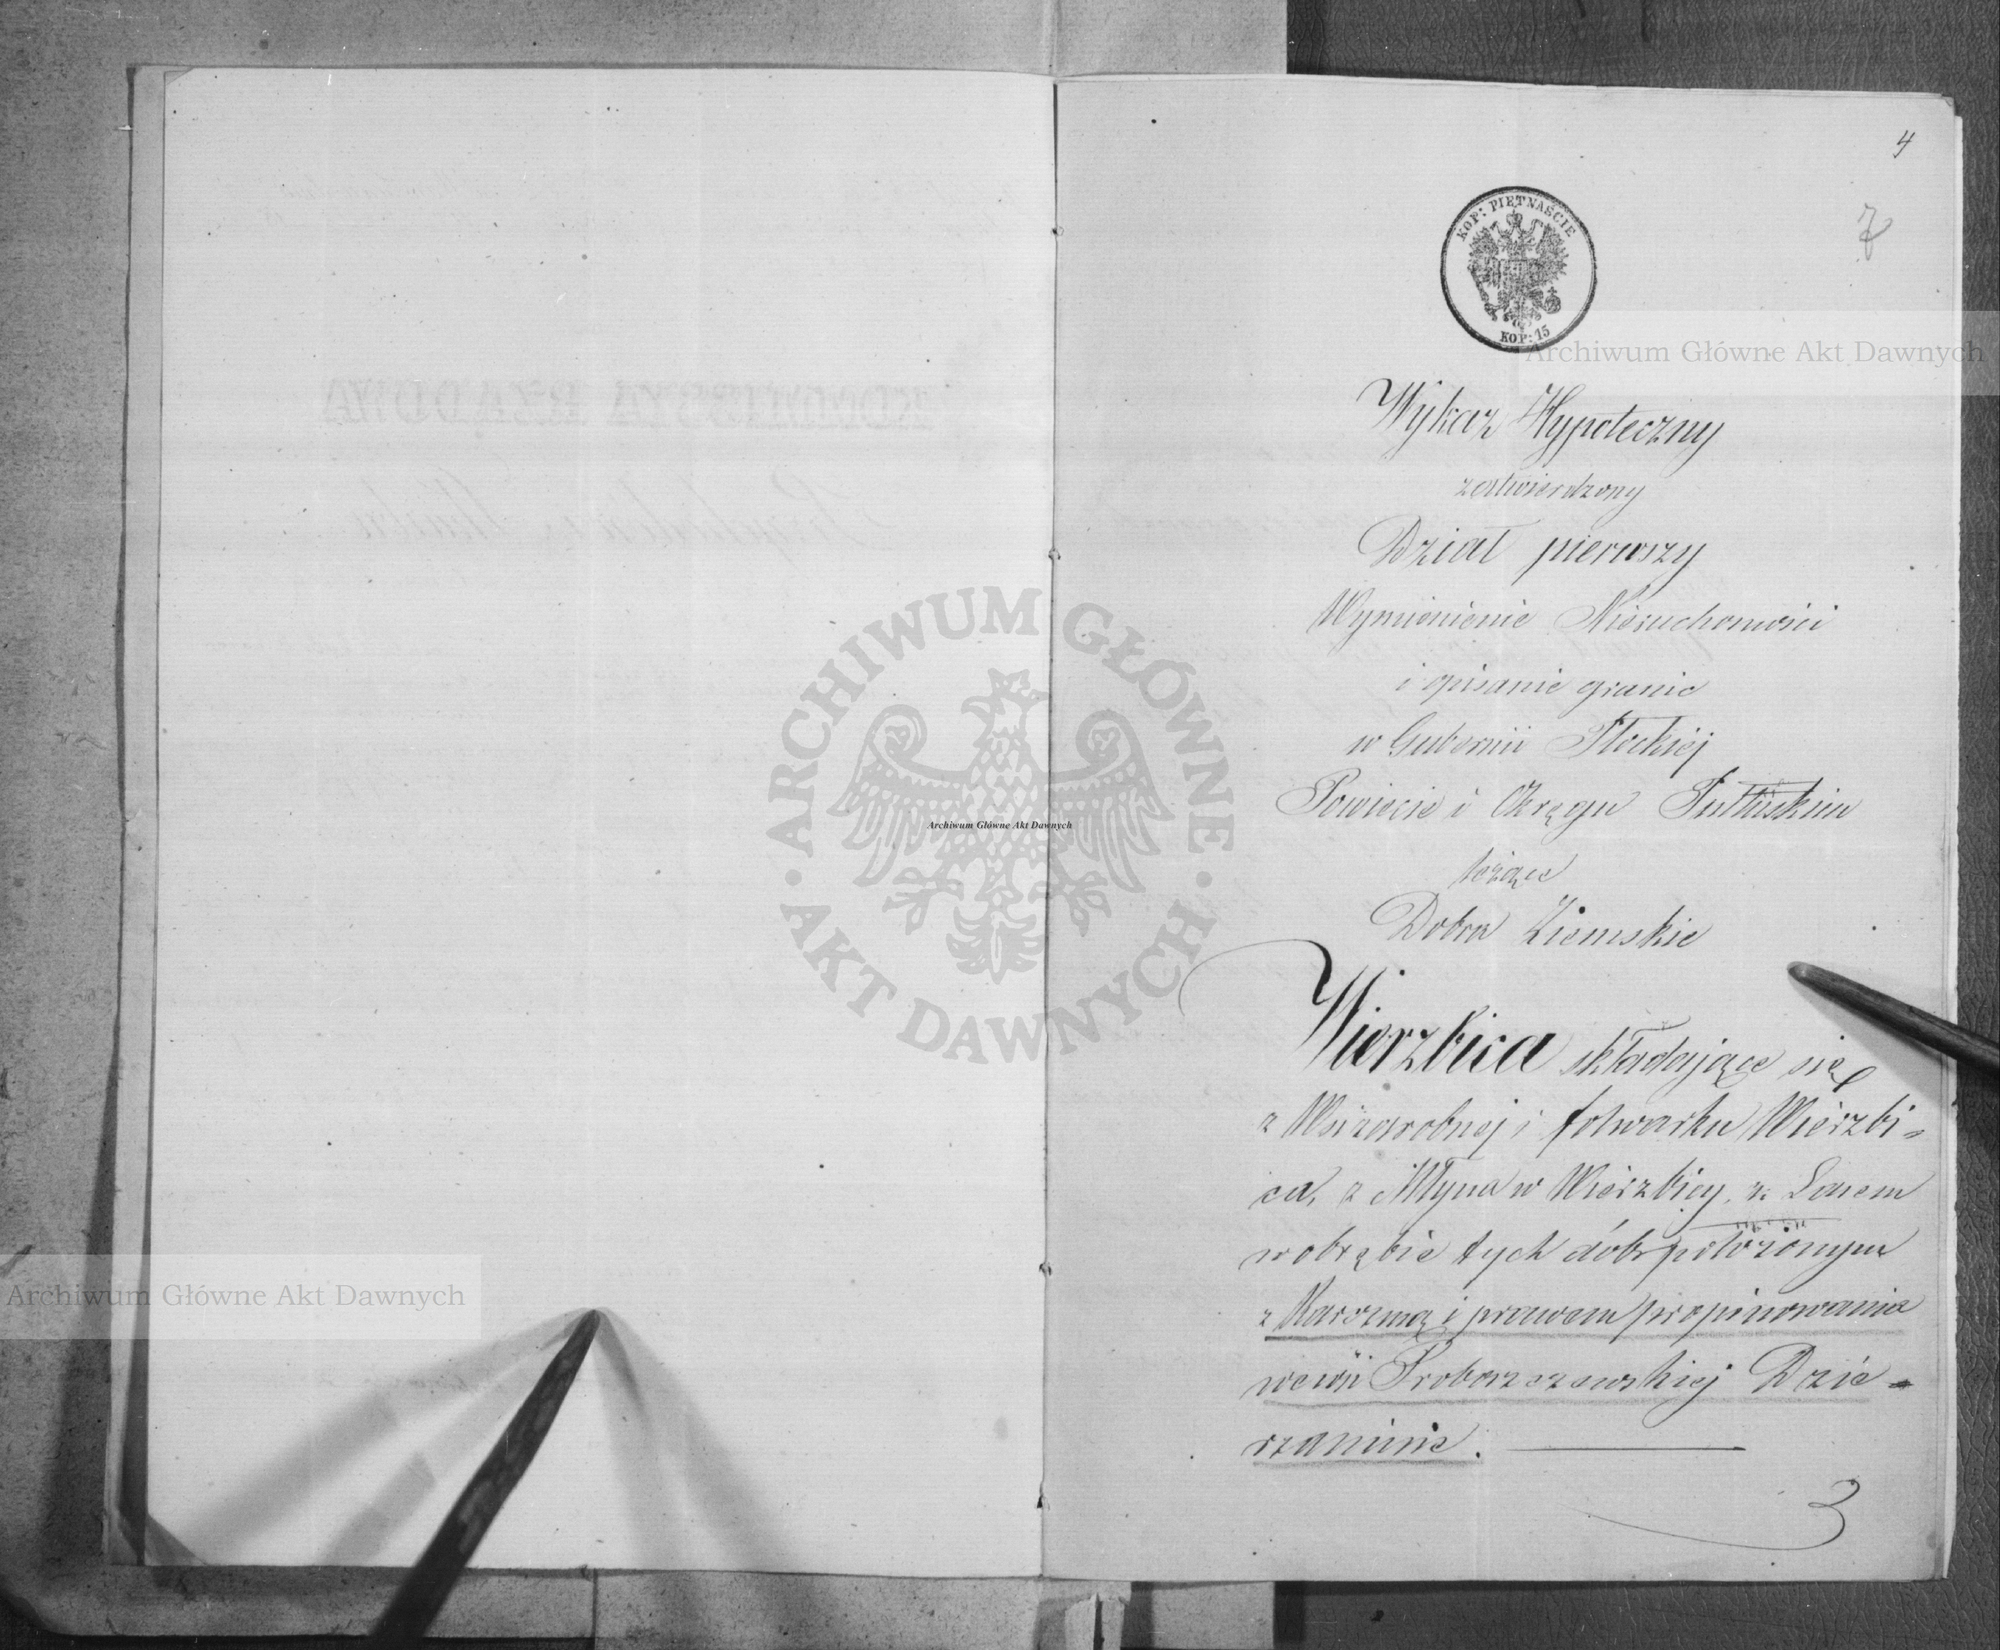 4
7
KOP: PIĘTNAŚCIE
KOP: 15
Archiwum Główne Akt Dawnych
Wykaz Hypoteczny
zatwierdzony
Dział pierwszy
Wymienienie Nieruchomości
i opisanie granic
w Gubernii Płockiéj
Powiecie i Okręgu Pułtuskim
leżące
Dobra Ziemskie
Wierzbica składające się
z Wsi zarobnej i folwarku Wierzbi-
ca, z Młyna w Wierzbicy, z Lasem
w obrębie tych dóbr położonym
z Karczmą i prawem propinowania
we wsi Proboszczewskiej Dzie-
rzaninie.
3
ARCHIWUM GŁÓWNE
AKT DAWNYCH
Archiwum Główne Akt Dawnych
Archiwum Główne Akt Dawnych